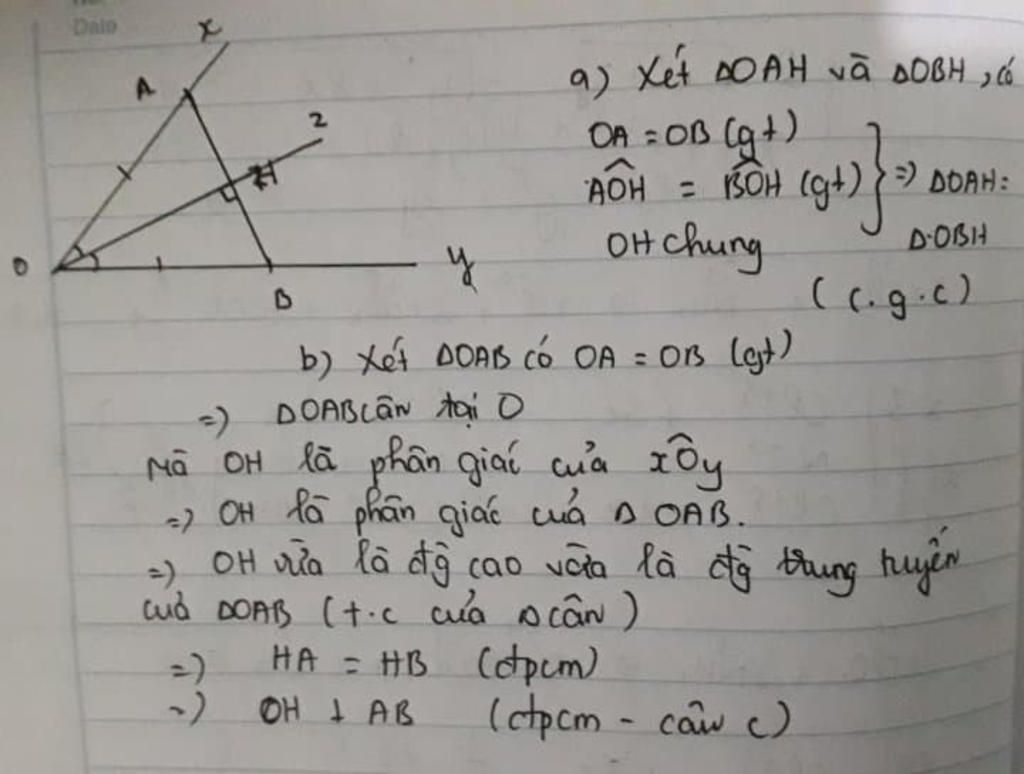 Date
x
A
z
H
O
B
y
a) Xét ΔOAH và ΔOBH, có
OA = OB (gt)
AÔH = BÔH (gt) } => ΔOAH =
OH chung ΔOBH
(c.g.c)
b) Xét ΔOAB có OA = OB (gt)
=) ΔOAB cân tại O
Mà OH là phân giác của xÔy
=) OH là phân giác của Δ OAB.
=) OH vừa là đg̀ cao vừa là đg̀ trung tuyến
của ΔOAB (t.c của Δ cân)
=) HA = HB (đpcm)
=) OH ⊥ AB (đpcm - câu c)